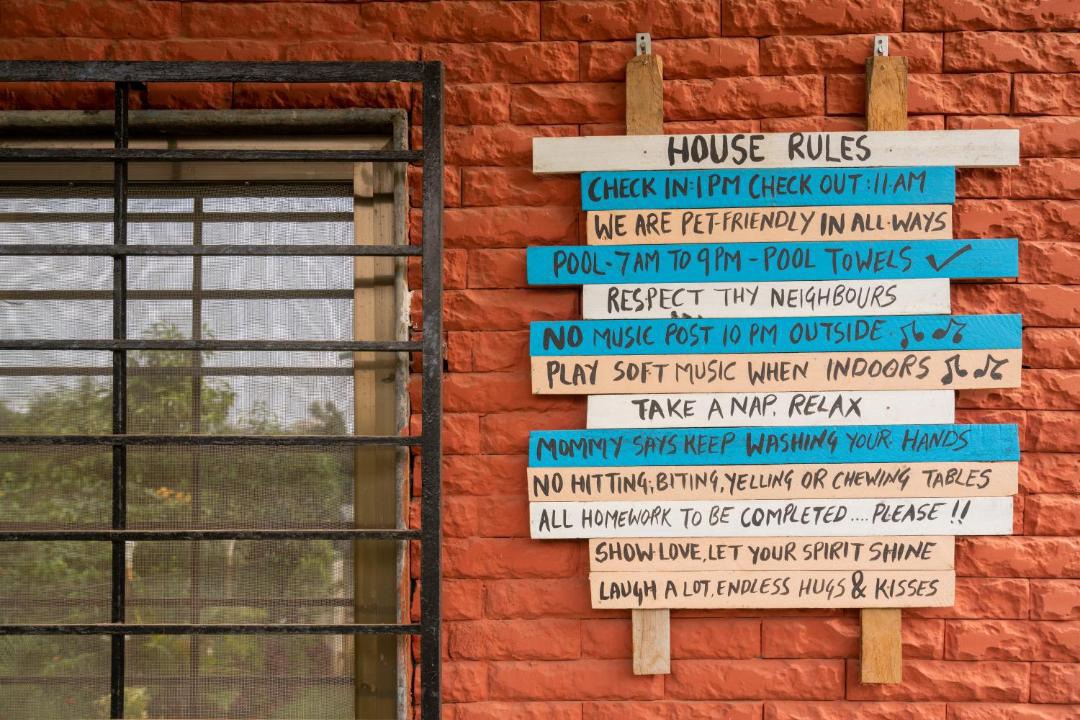 HOUSE RULES
CHECK IN:1PM CHECK OUT:11AM
WE ARE PET-FRIENDLY IN ALL-WAYS
POOL-7AM TO 9PM-POOL TOWELS ✓
RESPECT THY NEIGHBOURS
NO MUSIC POST 10 PM OUTSIDE
PLAY SOFT MUSIC WHEN INDOORS
TAKE A NAP, RELAX
MOMMY SAYS KEEP WASHING YOUR HANDS
NO HITTING, BITING, YELLING OR CHEWING TABLES
ALL HOMEWORK TO BE COMPLETED....PLEASE !!
SHOW LOVE, LET YOUR SPIRIT SHINE
LAUGH A LOT, ENDLESS HUGS & KISSES